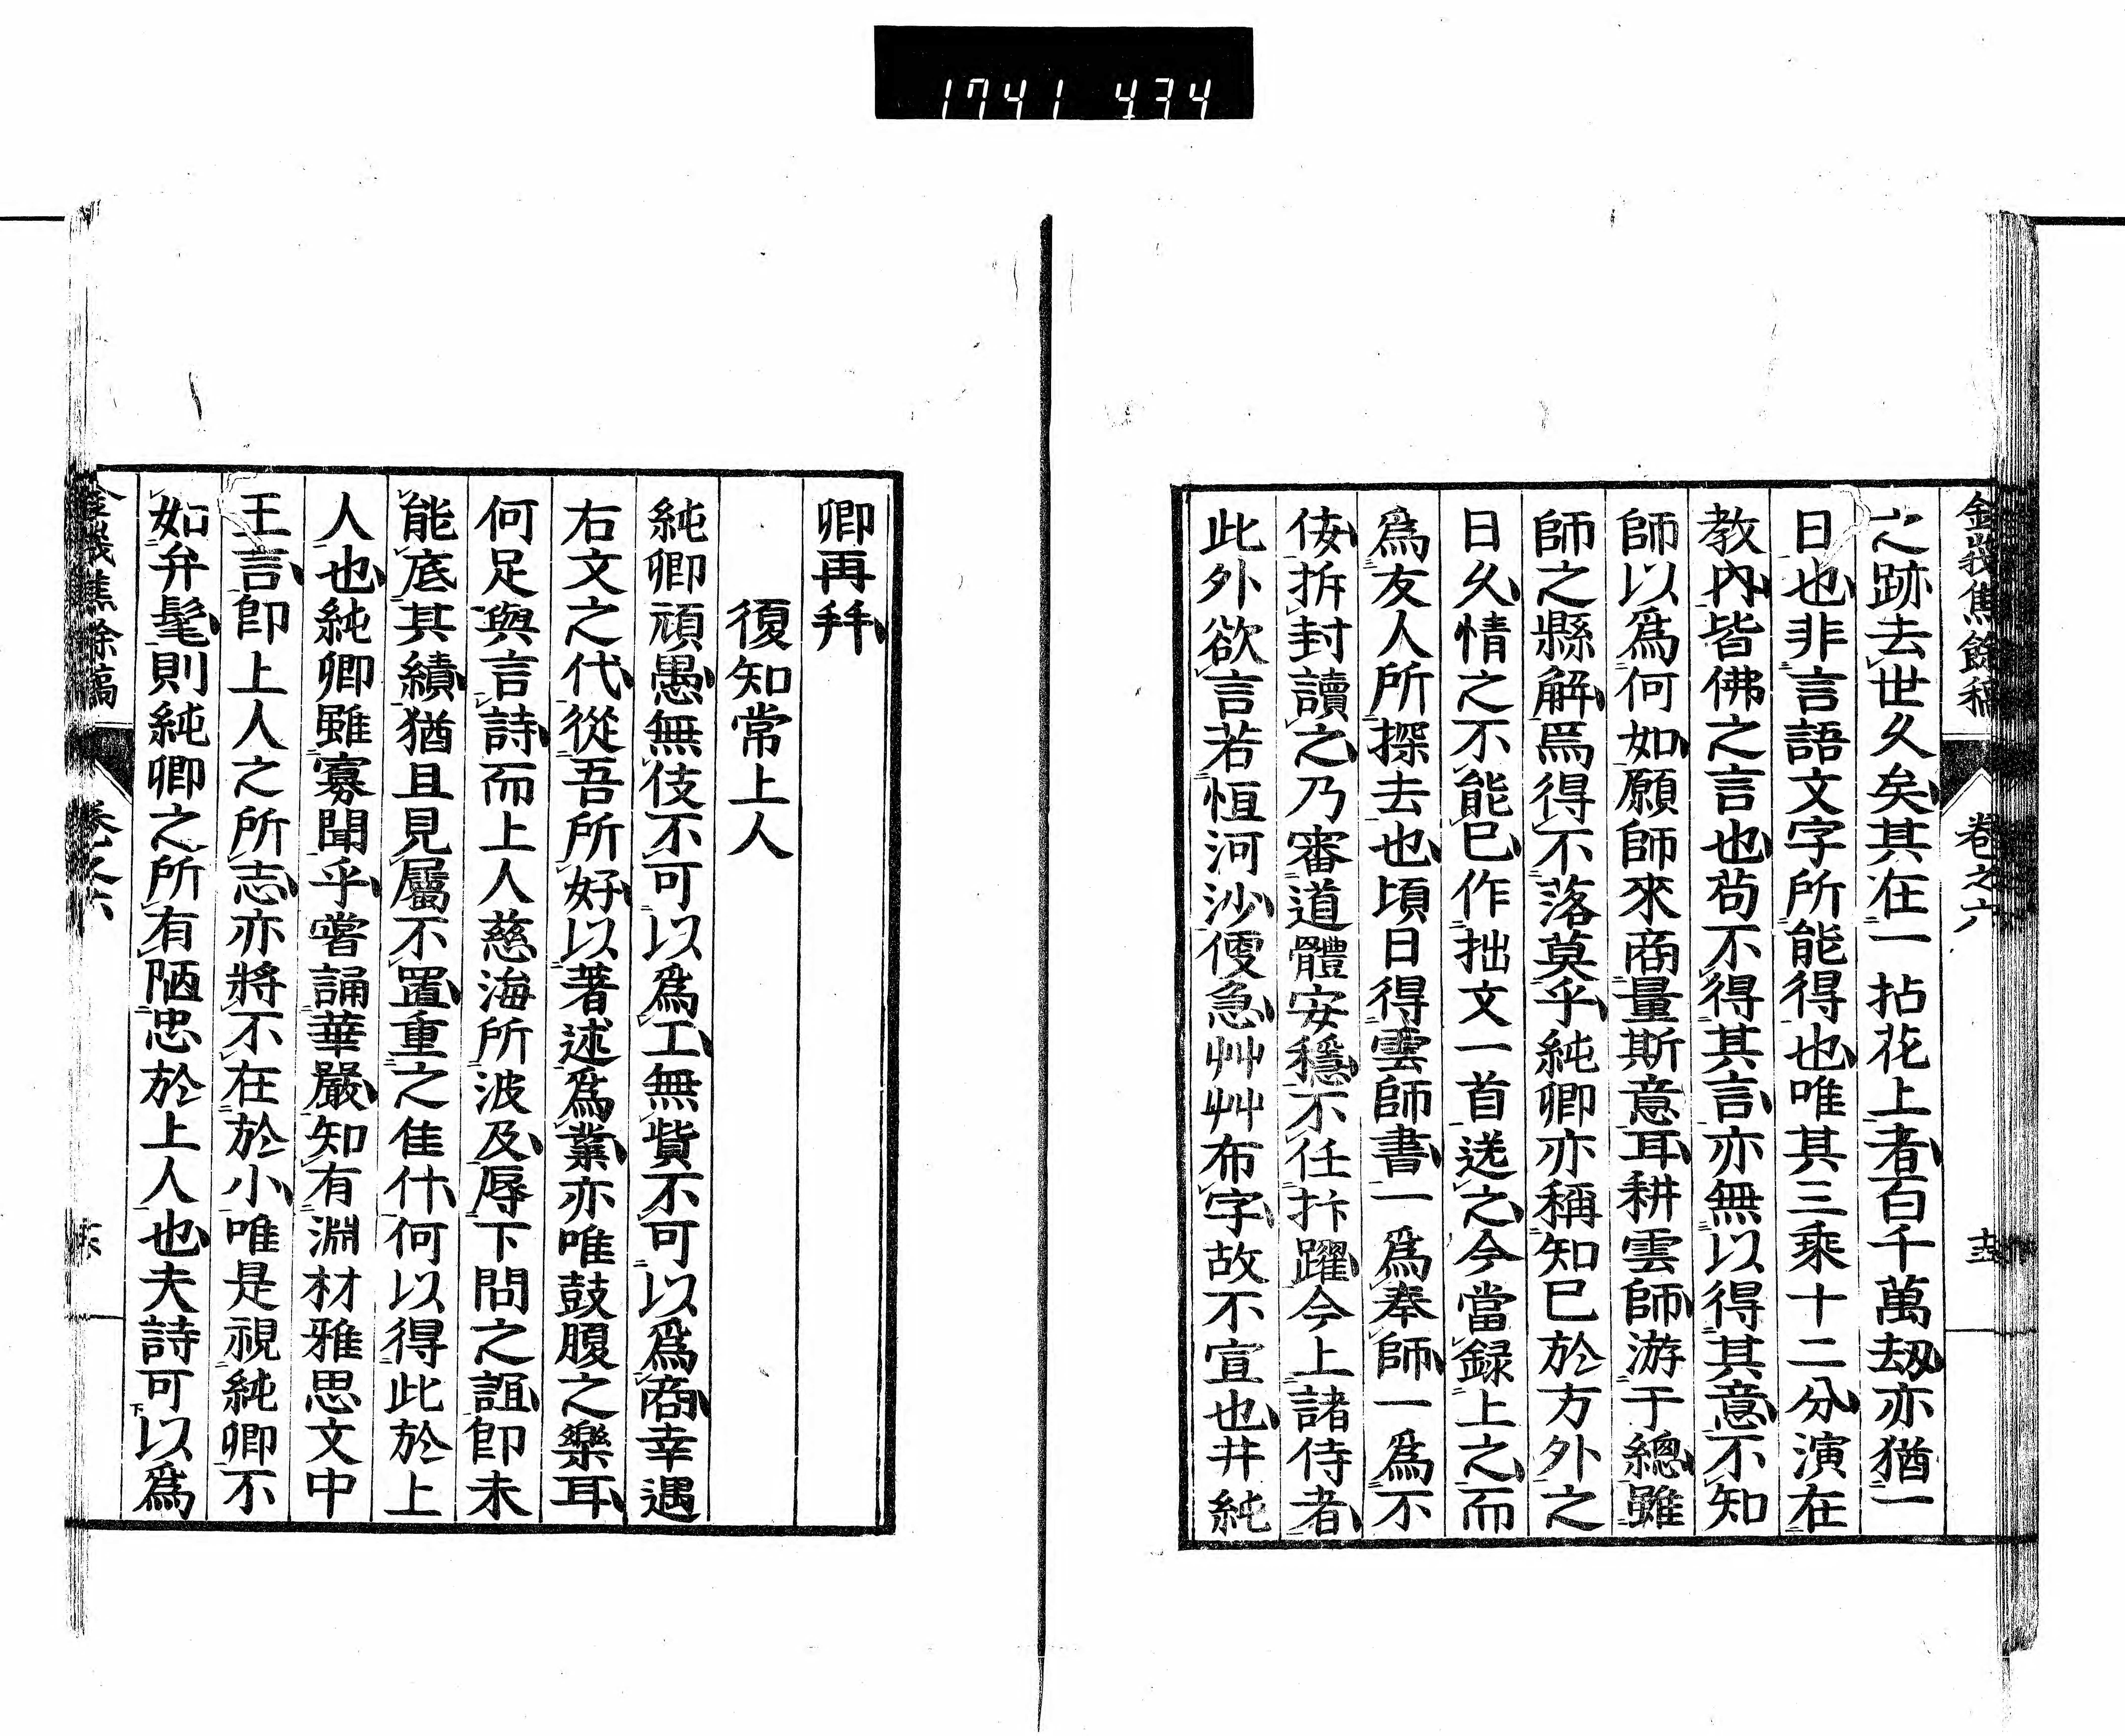 1741 434
金峩焦餘稿 卷之六
之跡去世久矣其在一拈花上者百千萬刧亦猶一
日也非言語文字所能得也唯其三乘十二分演在
教內皆佛之言也苟不得其言亦無以得其意不知
師以爲何如願師來商量斯意耳耕雲師游于總雖
師之縣解焉得不落莫乎純卿亦稱知已於方外之
日久情之不能已作拙文一首送之今當録上之而
爲友人所探去也頃日得雲師書一爲奉師一爲不
侫拆封讀之乃審道體安穩不任抃躍今上諸侍者
此外欲言若恒河沙便急艸艸布字故不宣也井純
卿再拜
復知常上人
純卿頑愚無伎不可以爲工無貲不可以爲商幸遇
右文之代從吾所好以著述爲業亦唯鼓腹之樂耳
何足與言詩而上人慈海所波及辱下問之誼卽未
能底其績猶且見屬不置重之隹什何以得此於上
人也純卿雖寡聞乎嘗誦華嚴知有淵材雅思文中
王言卽上人之所志亦將不在於小唯是視純卿不
如弁髦則純卿之所有陋忠於上人也夫詩可以爲
金峩焦餘稿 卷之六